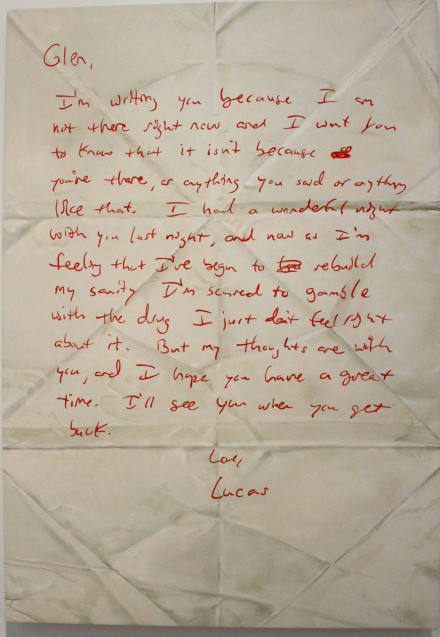 Glen,
I'm writing you because I am
not there right now and I want you
to know that it isn't because
you're there, or anything you said or aything
like that. I had a wonderful night
with you last night, and now as I'm
feeling that I've begun to rebuild
my sanity I'm scared to gamble
with the drug I just don't feel right
about it. But my thoughts are with
you, and I hope you have a great
time. I'll see you when you get
back.
Love,
Lucas